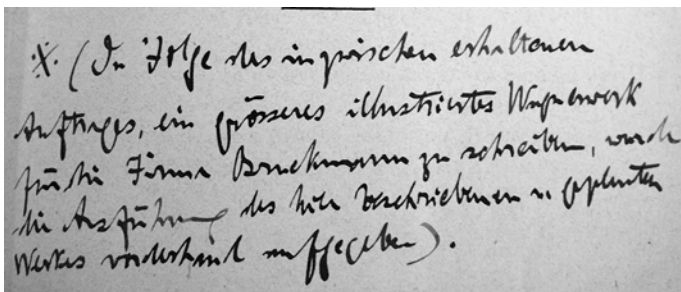 ※. (In Folge des inzwischen erhaltenen
Auftrages, ein grösseres illustriertes Wagnerwerk
für die Firma Bruckmann zu schreiben, wurde
die Ausführung des hier beschriebenen u. geplanten
Werkes vorderhand aufgegeben).